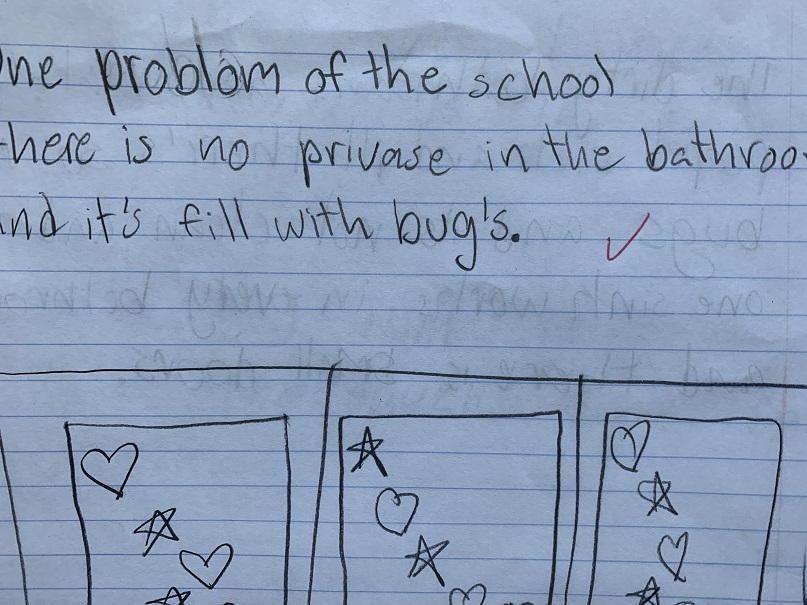 One problom of the school
there is no privase in the bathroo
and it's fill with bug's.